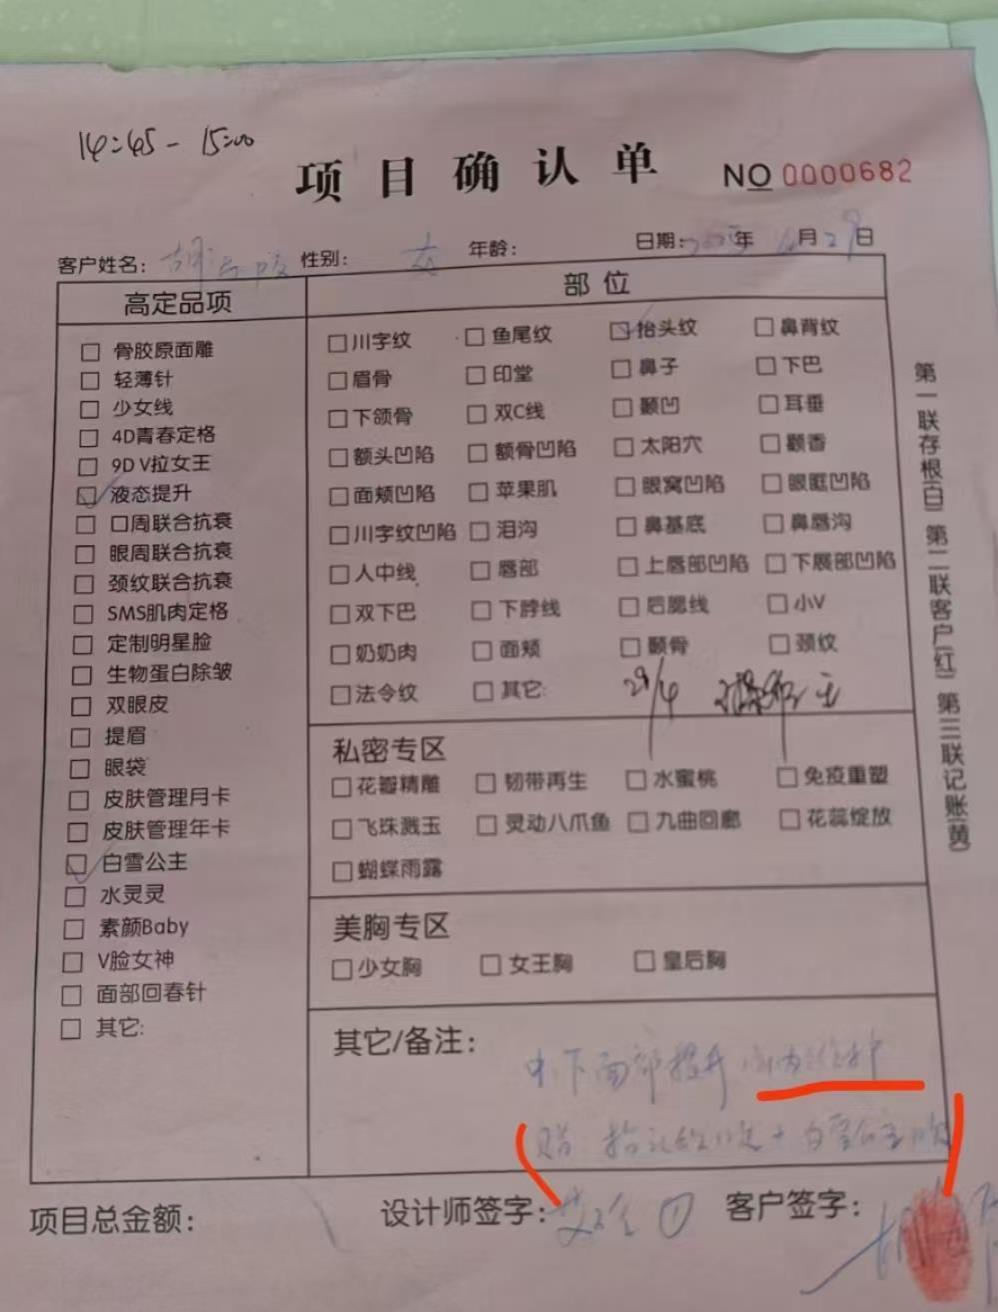 14:45 - 15:00
项目确认单 NO 0000682
客户姓名: 性别: 女 年龄: 日期: 年 月29日
高定品项
□ 骨胶原面雕
□ 轻薄针
□ 少女线
□ 4D青春定格
□ 9D V拉女王
□ 液态提升
□ 口周联合抗衰
□ 眼周联合抗衰
□ 颈纹联合抗衰
□ SMS肌肉定格
□ 定制明星脸
□ 生物蛋白除皱
□ 双眼皮
□ 提眉
□ 眼袋
□ 皮肤管理月卡
□ 皮肤管理年卡
□ 白雪公主
□ 水灵灵
□ 素颜Baby
□ V脸女神
□ 面部回春针
□ 其它:
部位
□ 川字纹 □ 鱼尾纹 □ 抬头纹 □ 鼻背纹
□ 眉骨 □ 印堂 □ 鼻子 □ 下巴
□ 下颌骨 □ 双C线 □ 颞凹 □ 耳垂
□ 额头凹陷 □ 额骨凹陷 □ 太阳穴 □ 颧香
□ 面颊凹陷 □ 苹果肌 □ 眼窝凹陷 □ 眼眶凹陷
□ 川字纹凹陷 □ 泪沟 □ 鼻基底 □ 鼻唇沟
□ 人中线 □ 唇部 □ 上唇部凹陷 □ 下展部凹陷
□ 双下巴 □ 下脖线 □ 后腮线 □ 小V
□ 奶奶肉 □ 面颊 □ 颧骨 □ 颈纹
□ 法令纹 □ 其它: 29/4
私密专区
□ 花瓣精雕 □ 韧带再生 □ 水蜜桃 □ 免疫重塑
□ 飞珠溅玉 □ 灵动八爪鱼 □ 九曲回廊 □ 花蕊绽放
□ 蝴蝶雨露
美胸专区
□ 少女胸 □ 女王胸 □ 皇后胸
其它/备注:
中下面部提升
赠: 抬头纹 + 白雪公主
项目总金额: 设计师签字: 客户签字:
第一联存根(白) 第二联客户(红) 第三联记账(黄)